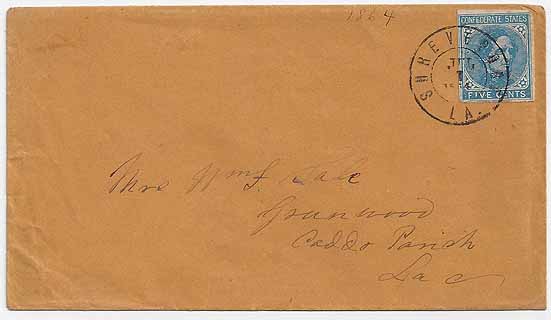 1864
CONFEDERATE STATES
FIVE CENTS
SHREVEPORT
LA.
Mrs Wm F. Tale
Greenwood
Caddo Parish
La